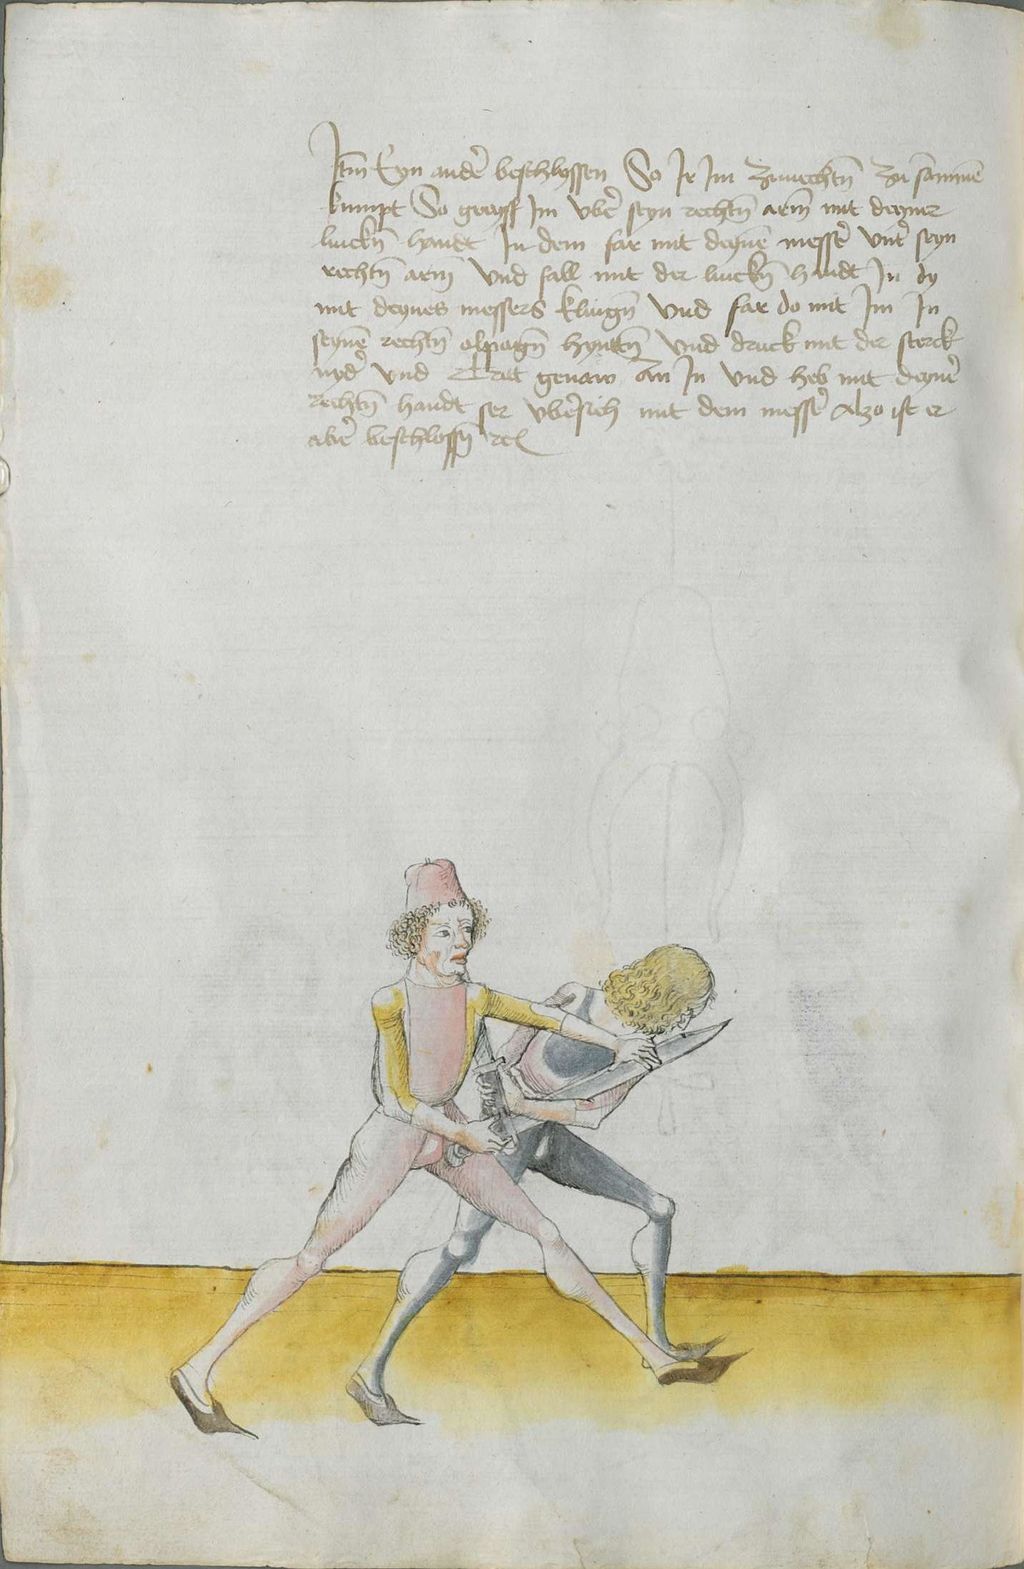 Itm Eyn ander̄ beschlyssen So Ir Im zuuechtn̄ zu sammē
kumpt So greyff Im vber̄ seyn rechtn̄ arm̄ mit deyner
linckn̄ handt In dem far mit deynē messer̄ vnter̄ seyn
rechtn̄ arm̄ vnd fall mit der linckn̄ handt In dy
mit deynes messers klingn̄ vnd far do mit Im In
seynē rechtn̄ elpogn̄ hyntn̄ vnd druck mit der sterck
nyder̄ vnd Trit genaw An In vnd heb mit deyner̄
rechtn̄ handt ser vbersich mit dem messer̄ Also ist er
aber̄ beschlossn̄ rc